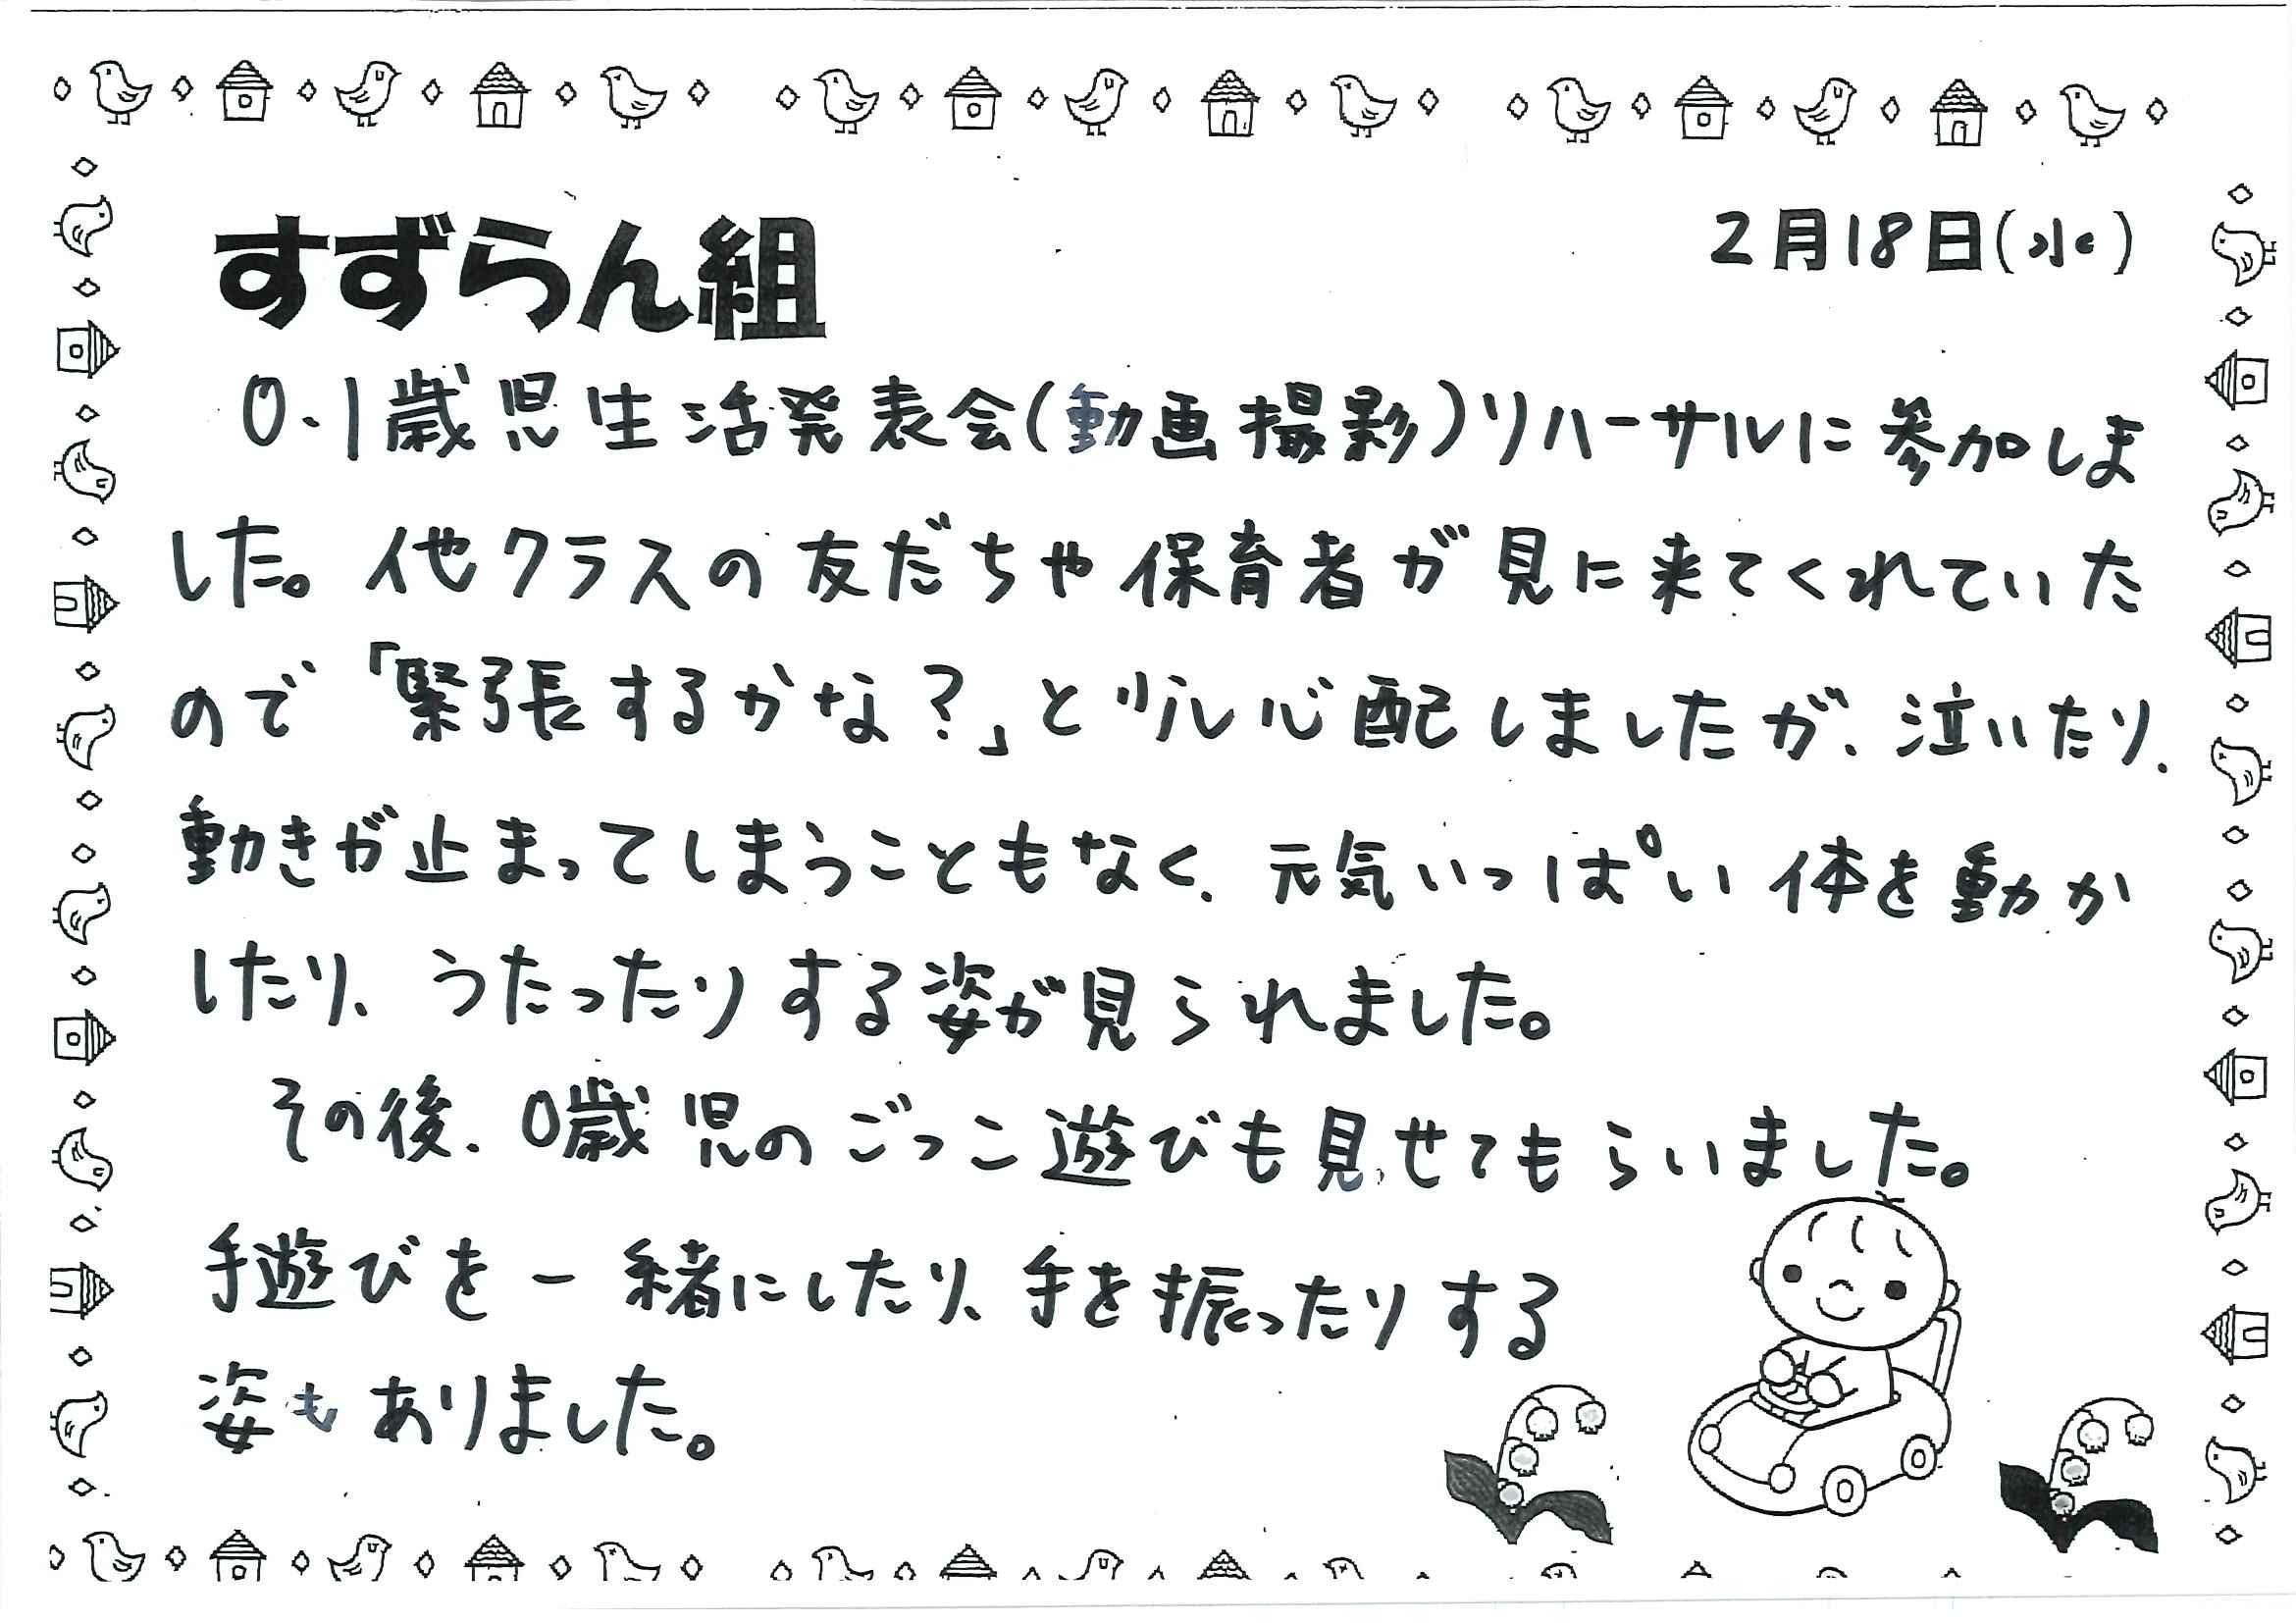 すずらん組
2月18日(水)
0.1歳児生活発表会(動画撮影)リハーサルに参加しま
した。他クラスの友だちや保育者が見に来てくれていた
ので「緊張するかな？」と少し心配しましたが、泣いたり、
動きが止まってしまうこともなく、元気いっぱい体を動か
したり、うたったりする姿が見られました。
その後、0歳児のごっこ遊びも見せてもらいました。
手遊びを一緒にしたり、手を振ったりする
姿もありました。